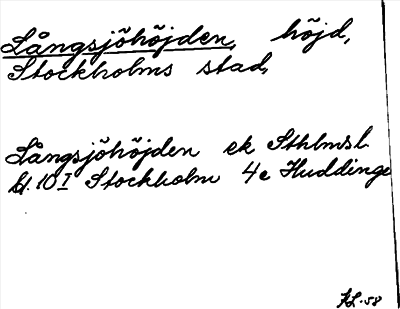 Långsjöhöjden, höjd,
Stockholms stad,
Långsjöhöjden ek Sthlmsl
bl. 10 I Stockholm 4e Huddinge
-58